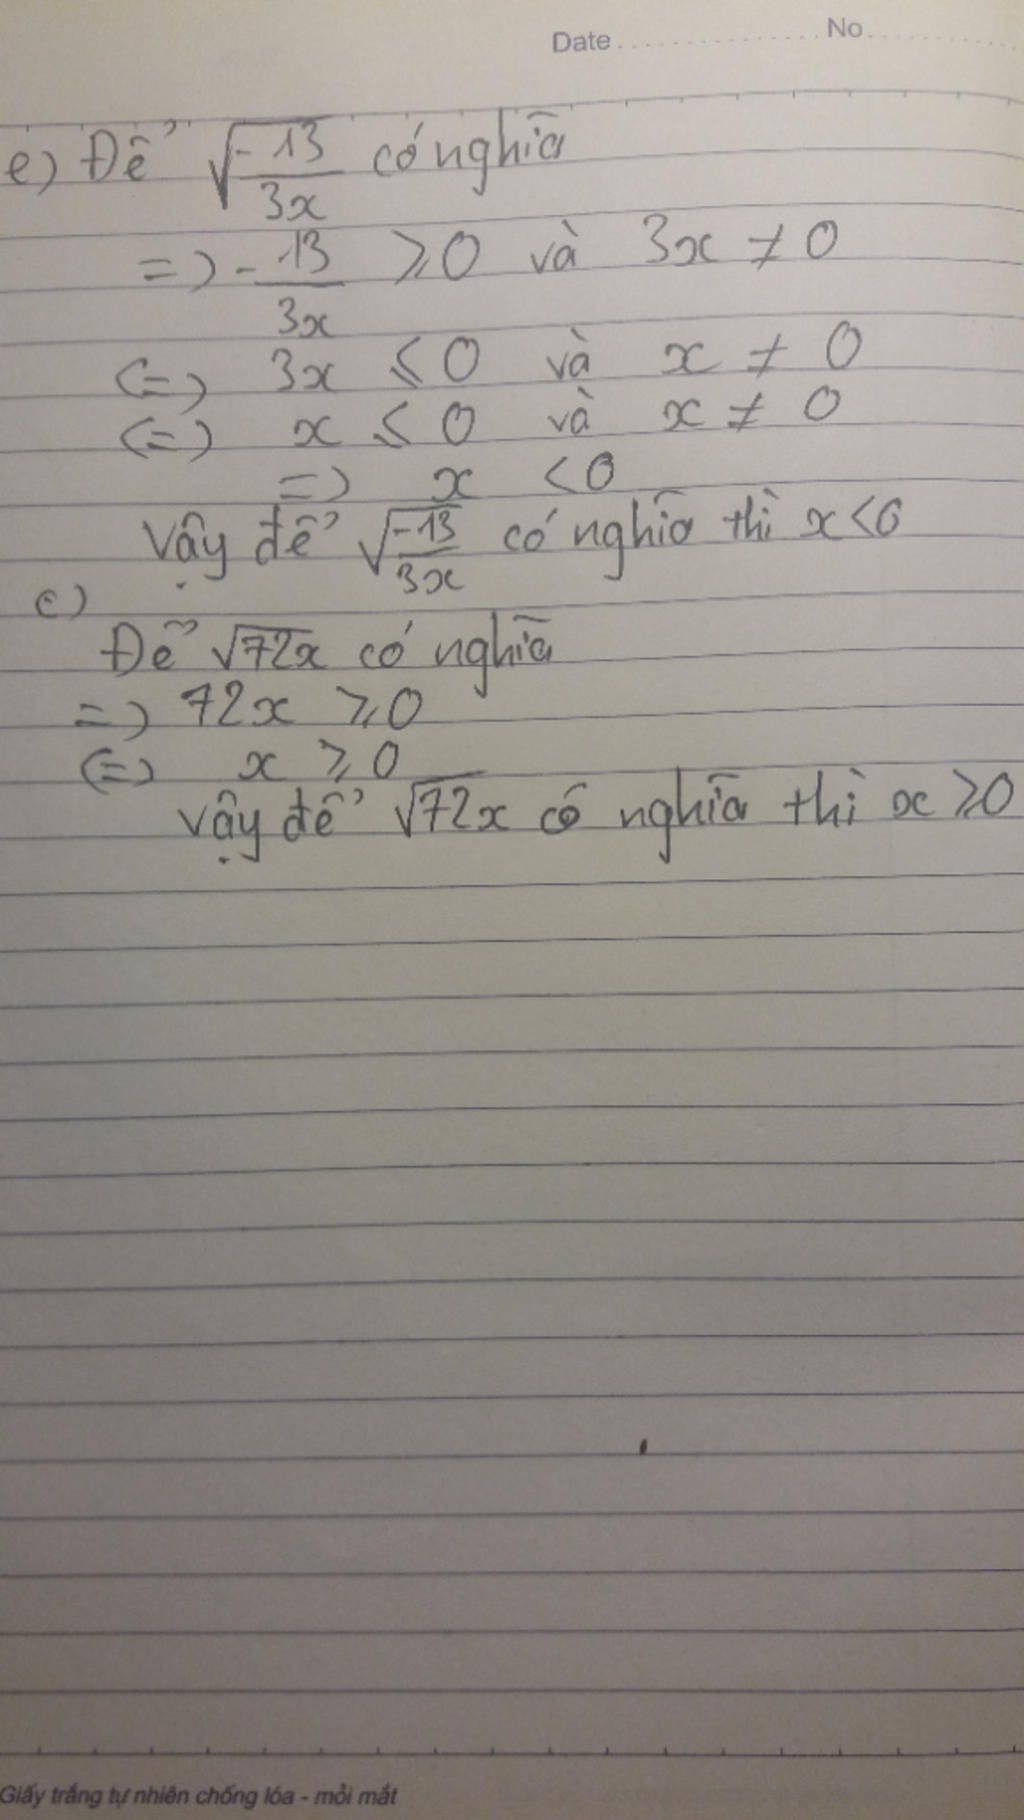 Date.................. No..............
e) Để √(-13/3x) có nghĩa
=> -13/3x ≥ 0 và 3x ≠ 0
<=> 3x ≤ 0 và x ≠ 0
<=> x ≤ 0 và x ≠ 0
=> x < 0
Vậy để √(-13/3x) có nghĩa thì x < 0
c)
Để √72x có nghĩa
=> 72x ≥ 0
<=> x ≥ 0
Vậy để √72x có nghĩa thì x ≥ 0
Giấy trắng tự nhiên chống lóa - mỏi mắt